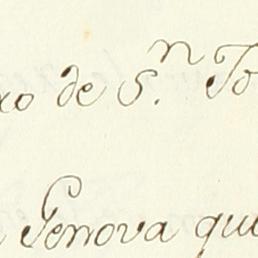 xo de S.ⁿ Jo
Genova qui